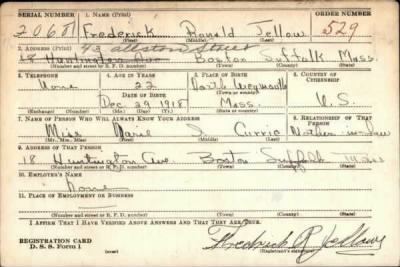 SERIAL NUMBER 1. NAME (Print) ORDER NUMBER
2068 Frederick Ronald Jellow 529
(First) (Middle) (Last)
2. ADDRESS (Print) 43 Allston Street
18 Huntington Ave Boston Suffolk Mass.
(Number and street or R. F. D. number) (Town) (County) (State)
3. TELEPHONE 4. AGE IN YEARS 5. PLACE OF BIRTH 6. COUNTRY OF CITIZENSHIP
None 22 North Weymouth
DATE OF BIRTH (Town or county)
Dec 29 1918 Mass. U.S.
(Exchange) (Number) (Mo.) (Day) (Yr.) (State or country)
7. NAME OF PERSON WHO WILL ALWAYS KNOW YOUR ADDRESS 8. RELATIONSHIP OF THAT PERSON
Miss Marie J. Currio Mother in law
(Mr., Mrs., Miss) (First) (Middle) (Last)
9. ADDRESS OF THAT PERSON
18 Huntington Ave. Boston Suffolk Mass
(Number and street or R. F. D. number) (Town) (County) (State)
10. EMPLOYER'S NAME
None
11. PLACE OF EMPLOYMENT OR BUSINESS
(Number and street or R. F. D. number) (Town) (County) (State)
I AFFIRM THAT I HAVE VERIFIED ABOVE ANSWERS AND THAT THEY ARE TRUE.
REGISTRATION CARD
D. S. S. Form 1 Frederick R Jellow
(Registrant's signature)